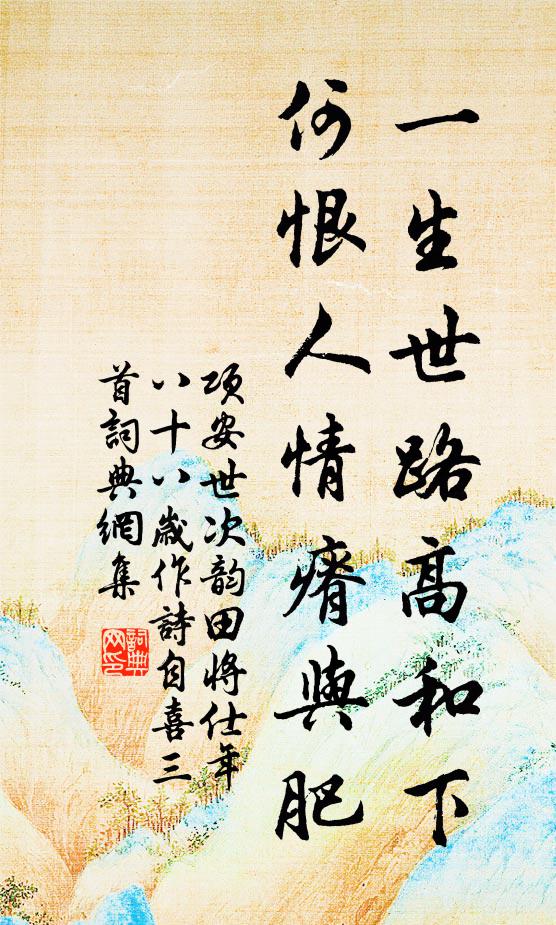 一生世路高和下
何恨人情瘠與肥
項安世次韵田將仕年
八十八歲作詩自喜三
首詞典網集
詞典
网印